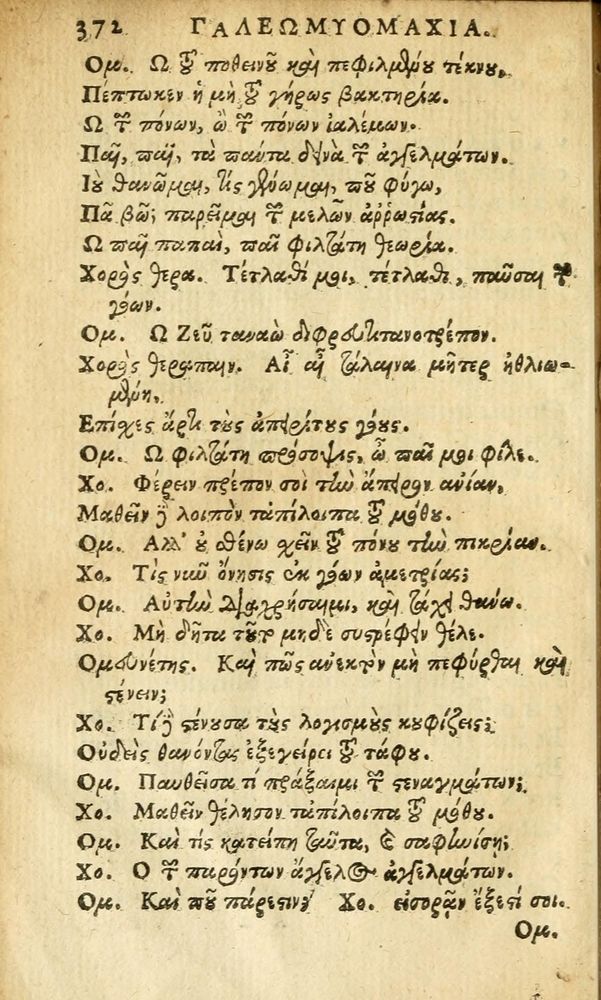 372 ΓΑΛΕΩΜΥΟΜΑΧΙΑ.
Ομ. Ω τοῦ ποθεινοῦ καὶ πεφιλμένου τέκνου,
Πέπτωκεν ἡ μὴ τοῦ γήρως βακτηρία.
Ω τῶν πόνων, ὢ τῶν πόνων ἰαλέμων.
Παῖ, παῖ, τὰ πάντα δεινὰ τῶν ἀγγελμάτων.
Ιοὺ θανῶμαι, τίς γένωμαι, ποῦ φύγω,
Πᾶ βῶ; παρεῖμαι τῶν μελῶν ἀῤῥωσίας.
Ω παῖ παπαὶ, παῖ φιλτάτη θεωρία.
Χορὸς θερα. Τέτλαθί μοι, τέτλαθι, παῦσαι τῶν
γόων.
Ομ. Ω Ζεῦ ταναὼ
Χορὸς θεραπαιν. Αἲ αἲ τάλαινα μῆτερ ἠθλιω-
μένη,
Επίσχες ἄρτι τοὺς ἀπείρους γόους.
Ομ. Ω φιλτάτη πρόσοψις, ὦ παῖ μοι φίλε.
Χο. Φέρειν πρέπον σοι τὴν ἄπειρον ἀνίαν,
Μαθεῖν δὲ λοιπὸν τἀπίλοιπα τοῦ μόθου.
Ομ. Αλλ' οὐ σθένω σχεῖν τοῦ πόνου τὴν πικρίαν.
Χο. Τὶς νῦν ὄνησις ἐκ γόων ἀμετρίας;
Ομ. Αὐτὴν διαχρήσαιμι, καὶ τάχει θάνω.
Χο. Μὴ δῆτα τοῦτο μηδὲ συστρέφειν θέλε.
Ομευνέτης. Καὶ πῶς ἀνεκτὸν μὴ πεφύρθαι καὶ
στένειν;
Χο. Τί δὲ στένουσα τοὺς λογισμοὺς κουφίζεις;
Οὐδεὶς θανόντας ἐξεγείρει τοῦ τάφου.
Ομ. Παυθεῖσα τί πράξαιμι τῶν στεναγμάτων;
Χο. Μαθεῖν θέλησον τἀπίλοιπα τοῦ μόθου.
Ομ. Καὶ τίς κατείπῃ ταῦτα, καὶ σαφηνίσῃ;
Χο. Ο τῶν παρόντων ἄγγελος ἀγγελμάτων.
Ομ. Καὶ ποῦ πάρεστιν; Χο. εἰσορᾶν ἔξεστί σοι.
Ομ.